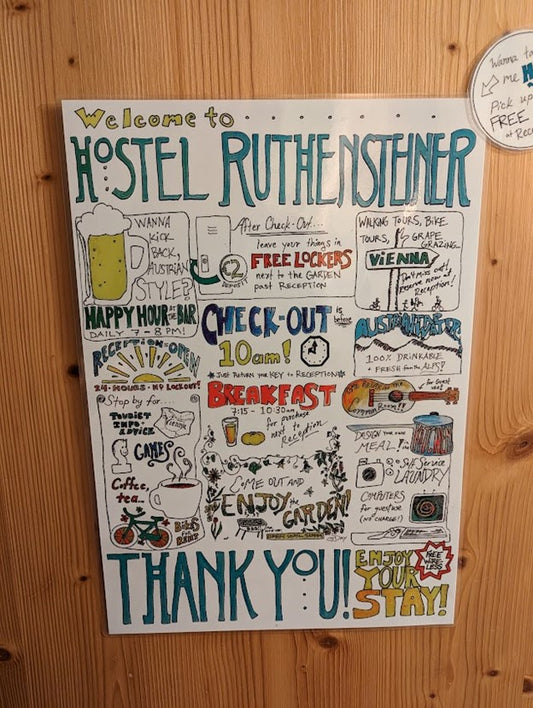 Welcome to
HOSTEL RUTHENSTEINER
WANNA
KICK
BACK,
AUSTRIAN
STYLE?
HAPPY HOUR AT THE BAR
DAILY 7-8 PM!
After Check-Out...
leave your things in
FREE LOCKERS
next to the GARDEN
past RECEPTION
€2
DEPOSIT
WALKING TOURS, BIKE
TOURS, GRAPE
GRAZING
VIENNA
Don't miss out!
reserve now at
Reception!
CHECK-OUT
is before
10am!
*Just Return your KEY to RECEPTION*
RECEPTION OPEN
24-HOURS-NO LOCKOUT!
100% DRINKABLE
+ FRESH from the ALPS!
BREAKFAST
7:15 - 10:30am
for purchase
next to
Reception
for Guest use!
Stop by for...
TOURIST
INFO:
ADVICE
GAMES
Coffee,
tea...
BIKES to RENT
COME OUT AND
ENJOY the
GARDEN!
DESIGN YOUR OWN
MEAL!
Self Service
LAUNDRY
COMPUTERS
for guest use
(NO CHARGE!)
THANK YOU!
ENJOY
YOUR
STAY!
FREE
WIRE
LESS
Wanna
me
Pick up
FREE
at